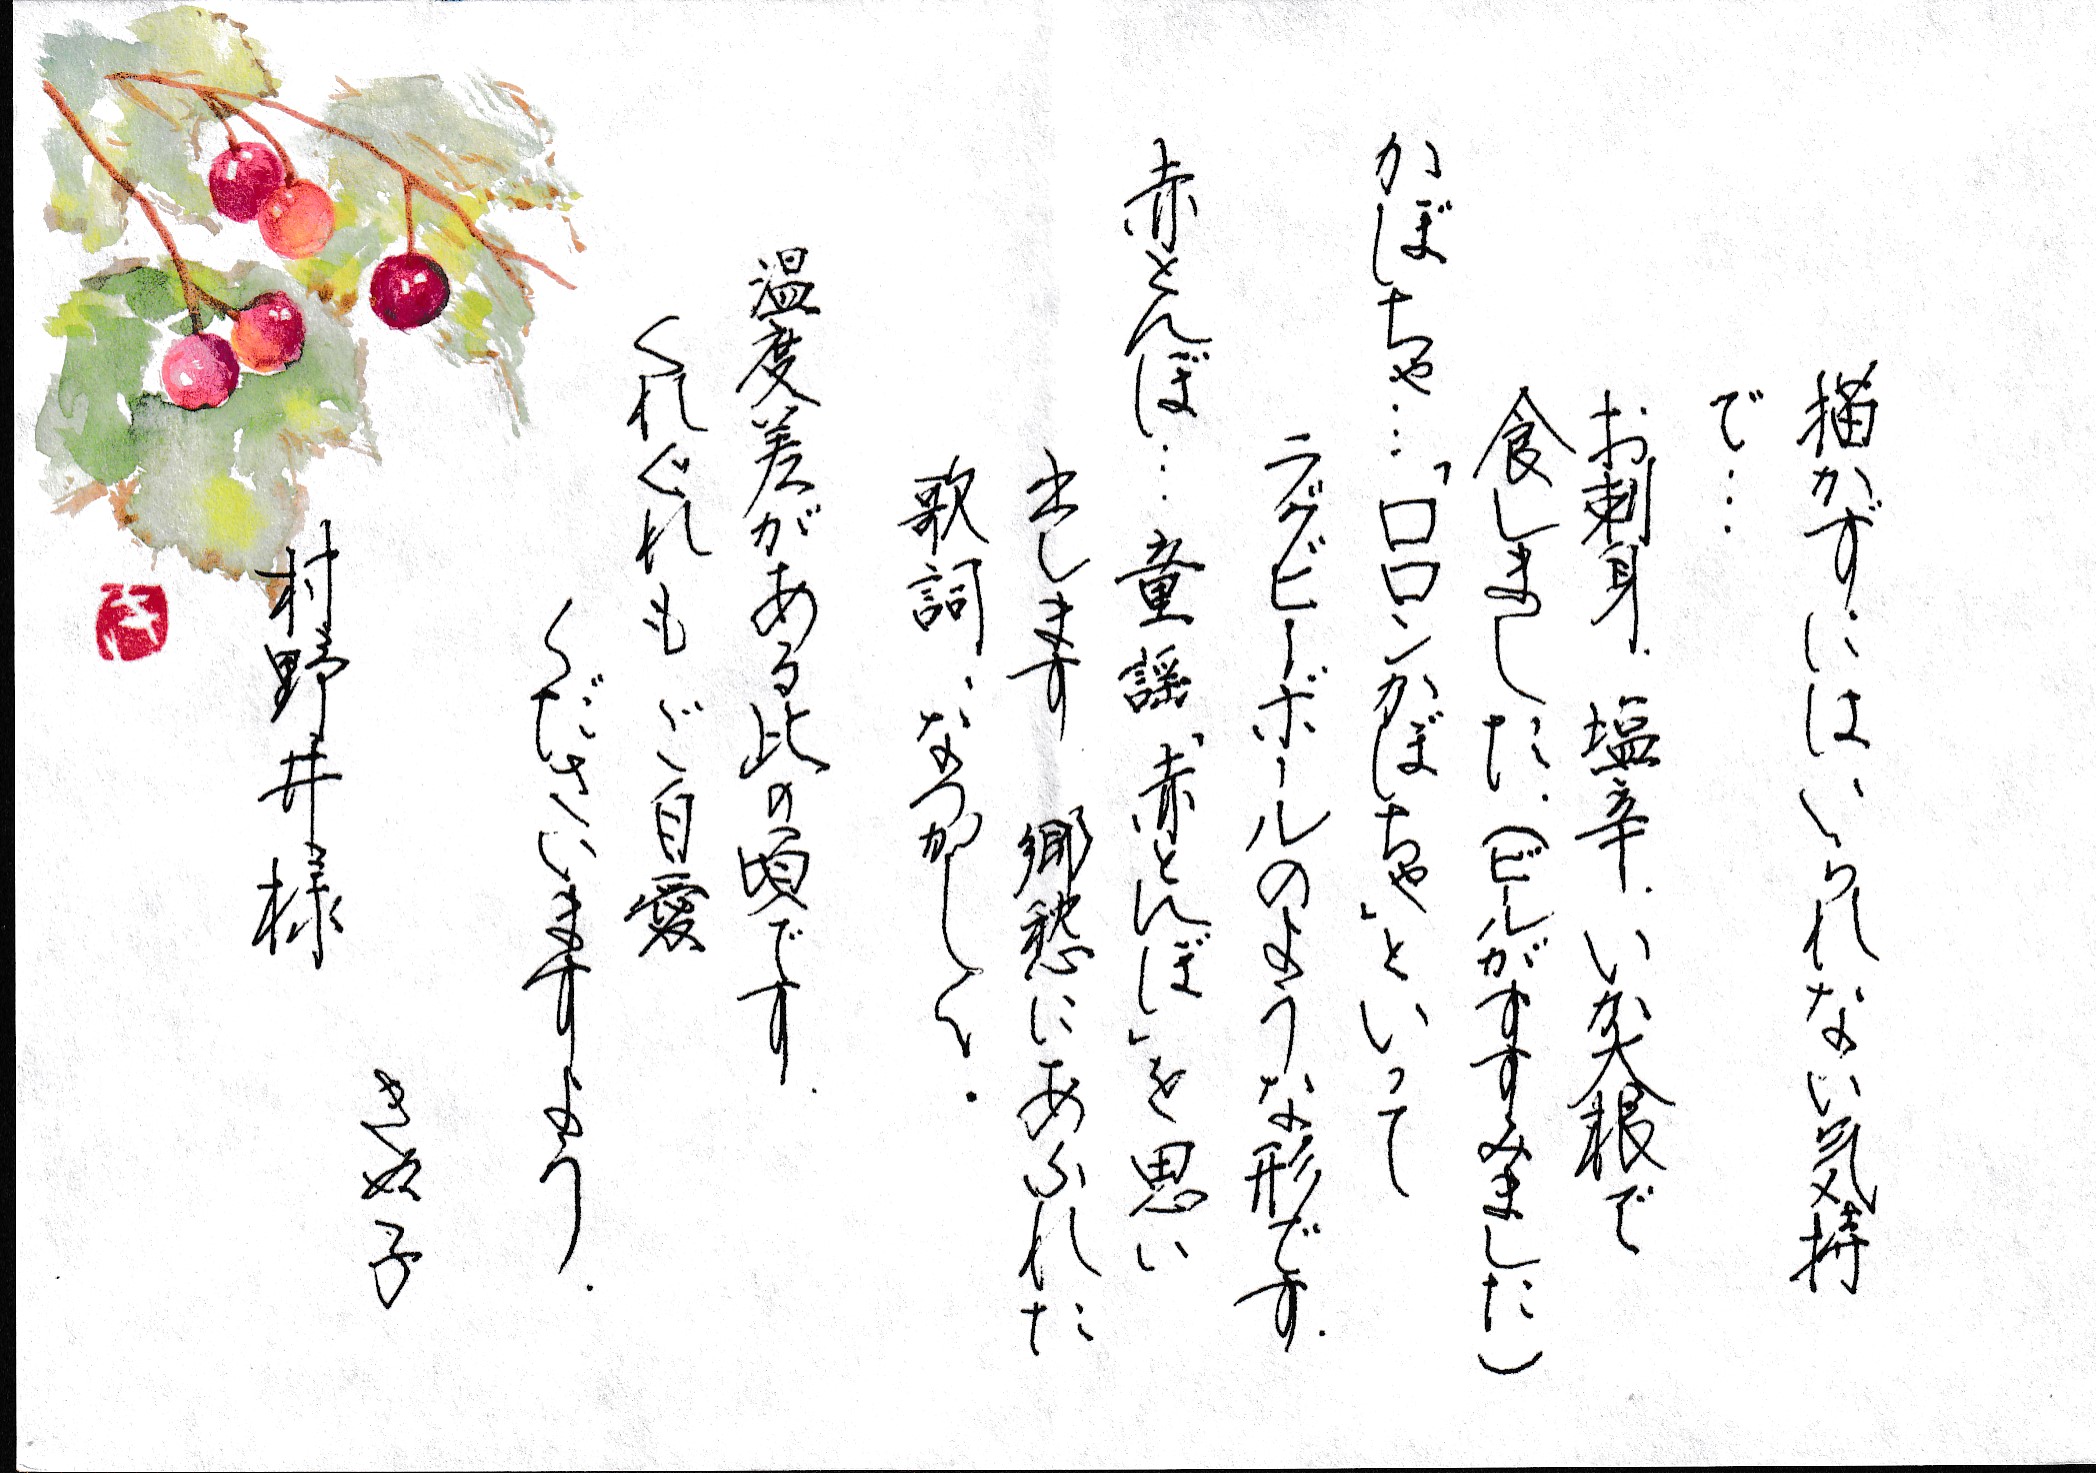 描かずにはいられない気持
で…
お刺身、塩辛、いか大根で
食しました。(ビールがすすみました)
かぼちゃ…「ロロンかぼちゃ」といって
ラグビーボールのような形です。
赤とんぼ…童謡「赤とんぼ」を思い
出します 郷愁にあふれた
歌詞、なつかしく。
温度差がある此の頃です。
くれぐれも ご自愛
くださいますよう。
村野井様
きぬ子